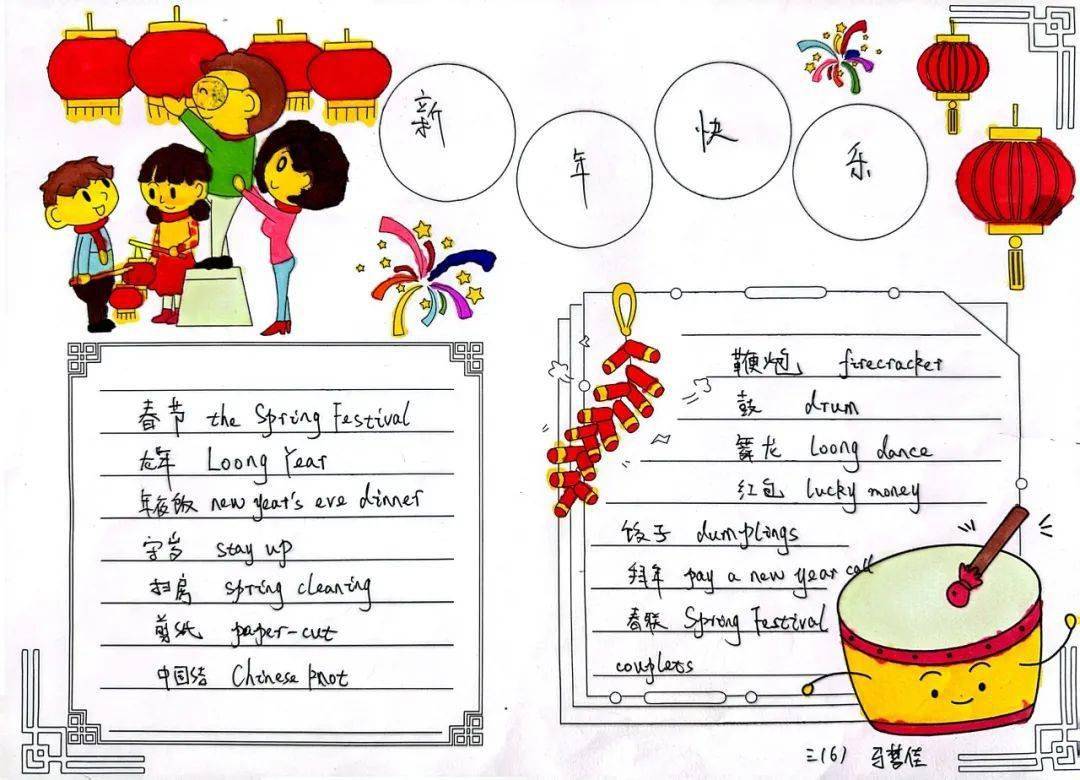 新年快乐
春节 the Spring Festival
龙年 Loong Year
年夜饭 new year's eve dinner
守岁 stay up
扫房 spring cleaning
剪纸 paper-cut
中国结 Chinese knot
鞭炮 firecracker
鼓 drum
舞龙 Loong dance
红包 lucky money
饺子 dumplings
拜年 pay a new year call
春联 Spring Festival
couplets
三(6) 马梦佳